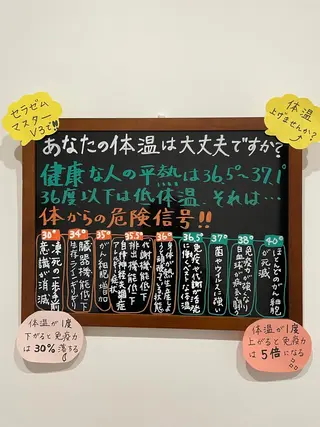 セラゼム
マスター
V3で!!
体温
上げませんか?
あなたの体温は大丈夫ですか?
健康な人の平熱は36.5°~37.1°
36度以下は低体温、それは…
体からの危険信号!!
30°
凍死の一歩手前
意識が消滅
34°
臓器機能低下
生存ラインギリギリ
35°
がん細胞増加
35.5°
代謝機能低下
排出機能低下
自律神経失調症
36°
36.5°
免疫や代謝が活発
37°
菌やウイルスに強い
38°
免疫力が強くなり
白血球が病と闘う
40°
ほとんどのがん細胞
が死滅
体温が1度
下がると免疫力
は30%落する
体温が1度
上がると免疫力
は5倍になる